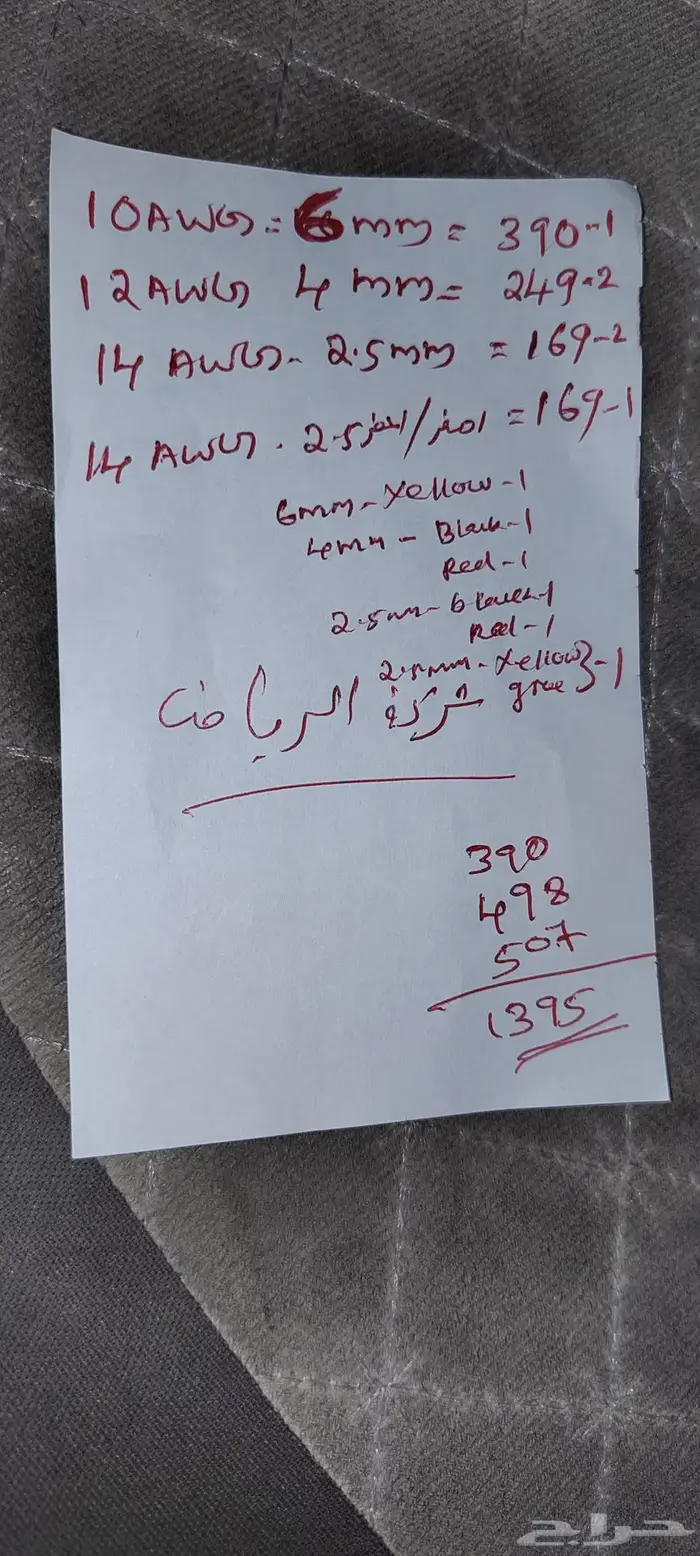 10AWG = 6mm = 390-1
12AWG 4mm = 249-2
14 AWG - 2.5mm = 169-2
14 AWG . 2.5 اصفر/اخضر = 169-1
6mm - Yellow - 1
4mm - Black - 1
Red - 1
2.5mm - black - 1
Red - 1
2.5mm - Yellow } - 1
شركة الرياض
390
498
507
1395
حراج